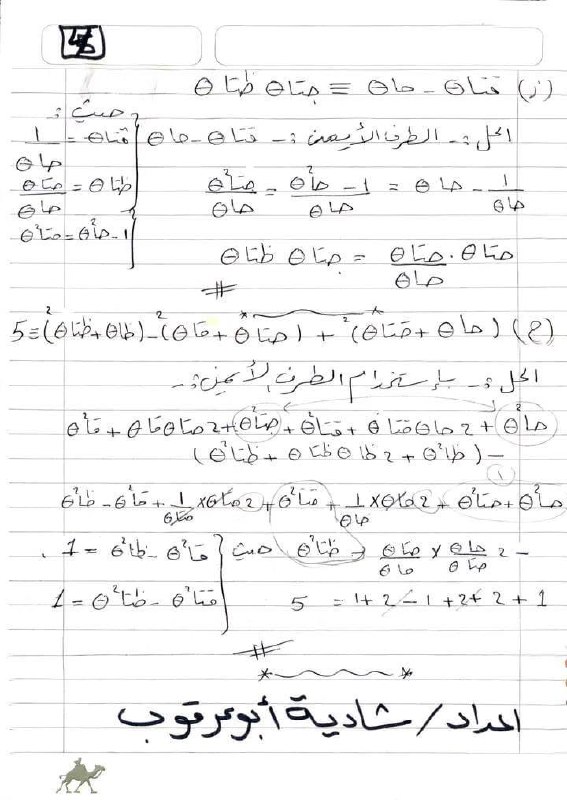 (ز) قتاθ - حاθ ≡ جتاθ ظتاθ
الحل :- الطرف الأيمن :- قتاθ - حاθ
حيث :-
قتاθ = 1/حاθ
ظتاθ = حتاθ/حاθ
1 - حا²θ = حتا²θ
1/حاθ - حاθ = (1 - حا²θ)/حاθ = حتا²θ/حاθ
حتاθ . حتاθ/حاθ = جتاθ ظتاθ
#
(ح) (حاθ + قتاθ)² + (حتاθ + قاθ)² - (ظاθ + ظتاθ)² ≡ 5
الحل :- بإستخدام الطرف الأيمن :-
حا²θ + 2 حاθ قتاθ + قتا²θ + حتا²θ + 2 حتاθ قاθ + قا²θ
- (ظا²θ + 2 ظاθ ظتاθ + ظتا²θ)
1
حا²θ + حتا²θ + 2 حاθ × 1/حاθ + قتا²θ + 2 حتاθ × 1/حتاθ + قا²θ - ظا²θ
- 2 حاθ/حتاθ × حتاθ/حاθ - ظتا²θ حيث قا²θ - ظا²θ = 1
قتا²θ - ظتا²θ = 1
1 + 2 + 2 + 1 - 2 + 1 = 5
#
اعداد / شادية أبو عرقوب